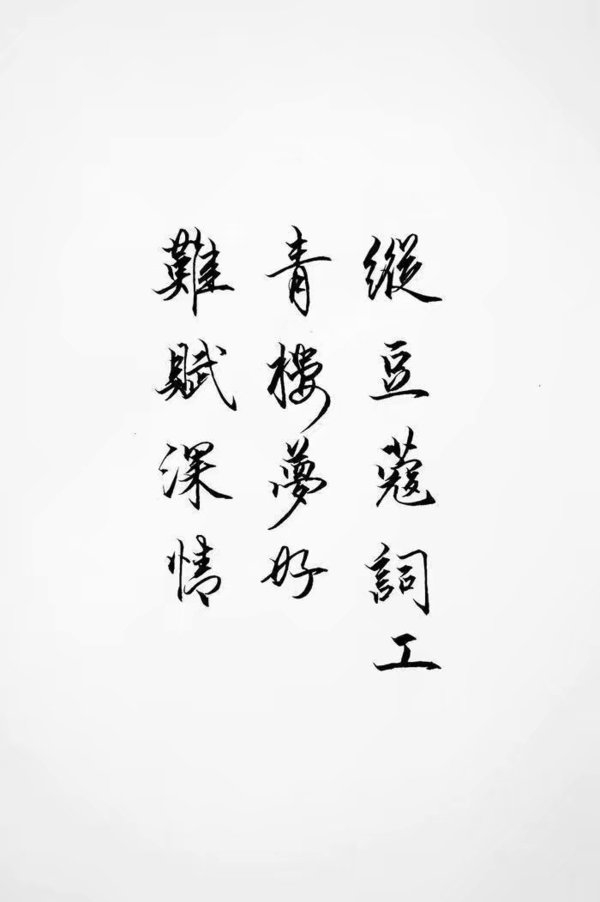 縱豆蔻詞工
青樓夢好
難賦深情